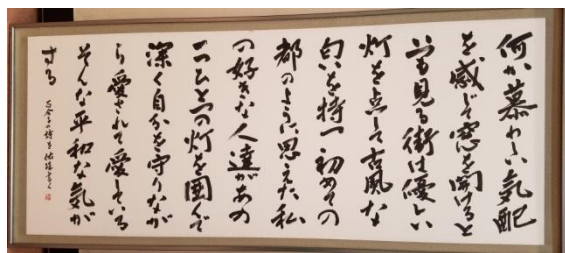 何か慕わしい気配
を感じて窓を開けると
いつも見る街は優しい
灯を点して古風な
匂いを持つ初めての
都のように思えた私
の好きな人達があの
一つひとつの灯を囲んで
深く自分を守りなが
ら愛されて愛している
そんな平和な気が
する